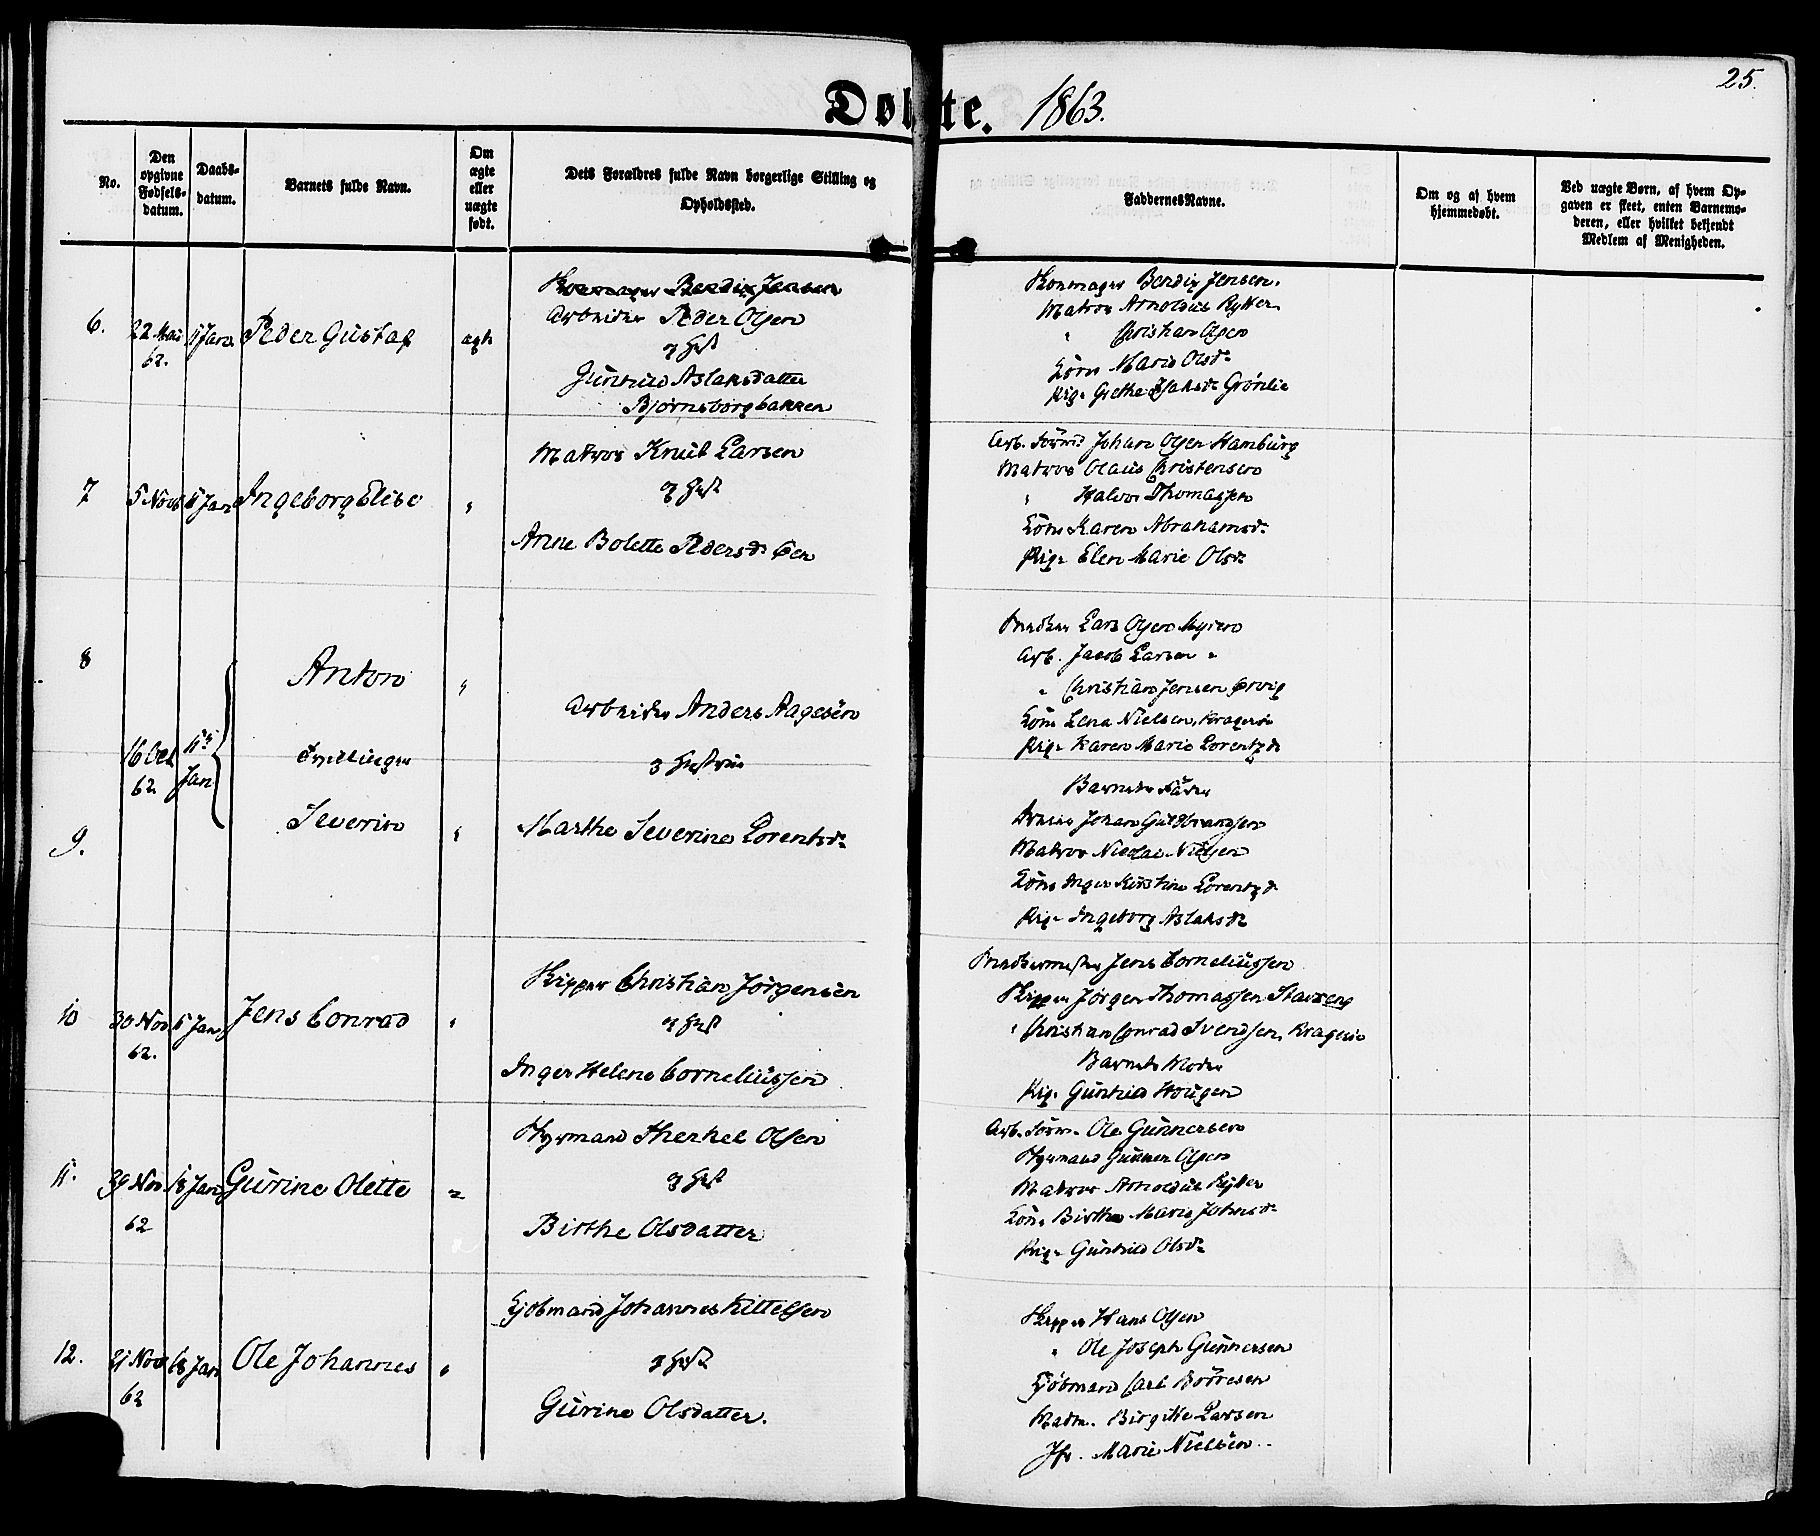 Døbte. 1863.
25.
No.
Den opgivne Fødsels-datum.
Daabs-datum.
Barnets fulde Navn.
Om ægte eller uægte født.
Dets Forældres fulde Navn borgerlige Stilling og Opholdssted.
Faddernes Navne.
Om og af hvem hjemmedøbt.
Ved uægte Børn, af hvem Op-
gaven er skeet, enten Barnemo-
deren, eller hvilket bekjendt
Medlem af Menigheden.
6.
22 Mai 62.
Jan.
Peder Gustaf
ægte
Bendix Jensen
Arbeider Peder Olsen
og Hust
Gunhild Aslaksdatter
Bjørnsborgbakken
Bendix Jensen.
Matros Arnoldus Rytter
" Christian Olsen
Kone Maria Olsd.
Pige Grethe Isaksd. Grönlie
7
5 Novb
11 Jan
Ingeborg Elise
"
Matros Knut Larsen
og Hust
Anne Bolette Pedersd.
Arb. Johan Olsen Hamburg
Matros Olaus Christensen
" Halvor Thomassen
Kone Karen Abrahamsd.
Pige Elen Marie Olsd.
8
16 Oct 62
Jan
Anton
"
Tvillinger
Arbeider Anders Aagesen
og Hustrue
Marthe Severine Lorentsd.
Lars Olsen
Arb. Jacob Larsen "
" Christian Jensen
Kone Lena Nielsen, Kragerø
Pige Karen Marie Lorentzd.
9.
Severin
"
Barnets Fader
Johan Guldbrandsen
Matros Nicolai Nielsen
Kone Inger Kirstine Lorentzd.
Pige Ingeborg Aslaksd.
10
30 Nov 62.
Jan
Jens Conrad
"
Skipper Christian Jörgensen
og Hust
Inger Helene Corneliussen
Jens Corneliussen
Skipper Jörgen Thomassen
" Christian Conrad Svendsen, Kragerø
Barnets Moder
Pige Gunhild Hougen
11.
Nov. 62
18 Jan
Gurine Olette
"
Styrmand Therkel Olsen
og Hust
Birthe Olsdatter
Arb. Ole Gunnersen
Styrmand Gunner Olsen
Matros Arnoldus Rytter
Kone Birthe Maria Johnsd.
Pige Gunhild Olsd.
12.
21 Nov 62
18 Jan
Ole Johannes
"
Kjöbmand Johannes Kittelsen
og Hust
Gurine Olsdatter.
Skipper Hans Olsen
" Ole Joseph Gunnersen
Kjöbmand Carl
Madm. Birgitte Larsen
Jfr. Marie Nielsen.